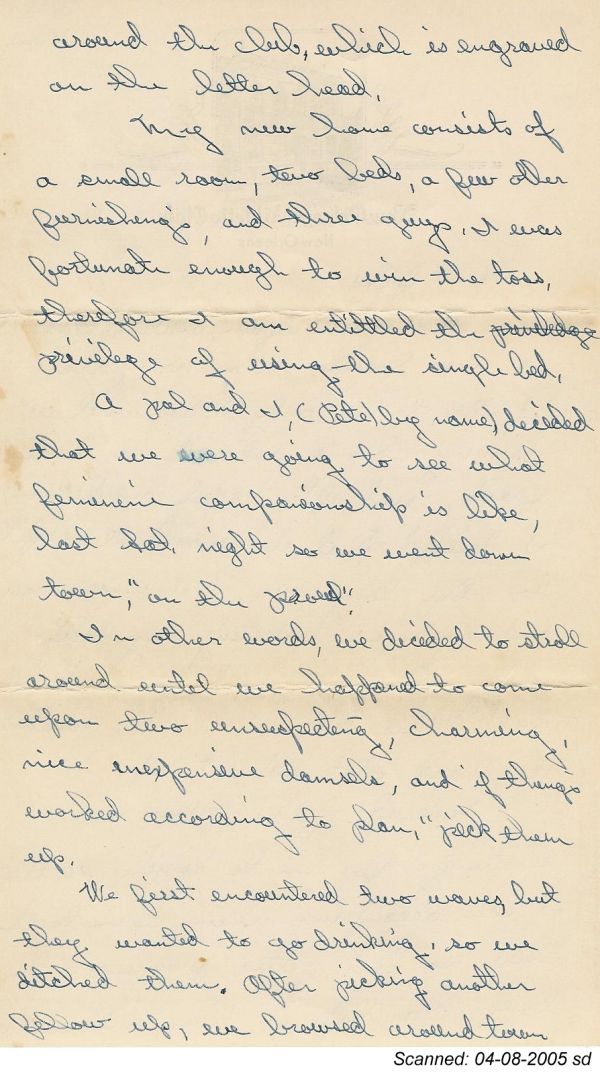 around the club, which is engraved
on the letter head.
My new home consists of
a small room, two beds, a few other
furnishengs, and three guys. I was
fortunate enough to win the toss,
therefore I am entittled the privledge
privilege of using the single bed.
A pal and I, (Pete) big name) decided
that we were going to see what
feminine companionship is like,
last Sat. night so we went down
town, "on the prowl".
In other words, we decided to stroll
around until we happend to come
upon two unsuspecting, charming,
nice inexpensive damsels, and if things
worked according to plan, "pick them
up.
We first encountered two waves, but
they wanted to go drinking, so we
ditched them. After picking another
fellow up, we browsed around town
Scanned: 04-08-2005 sd